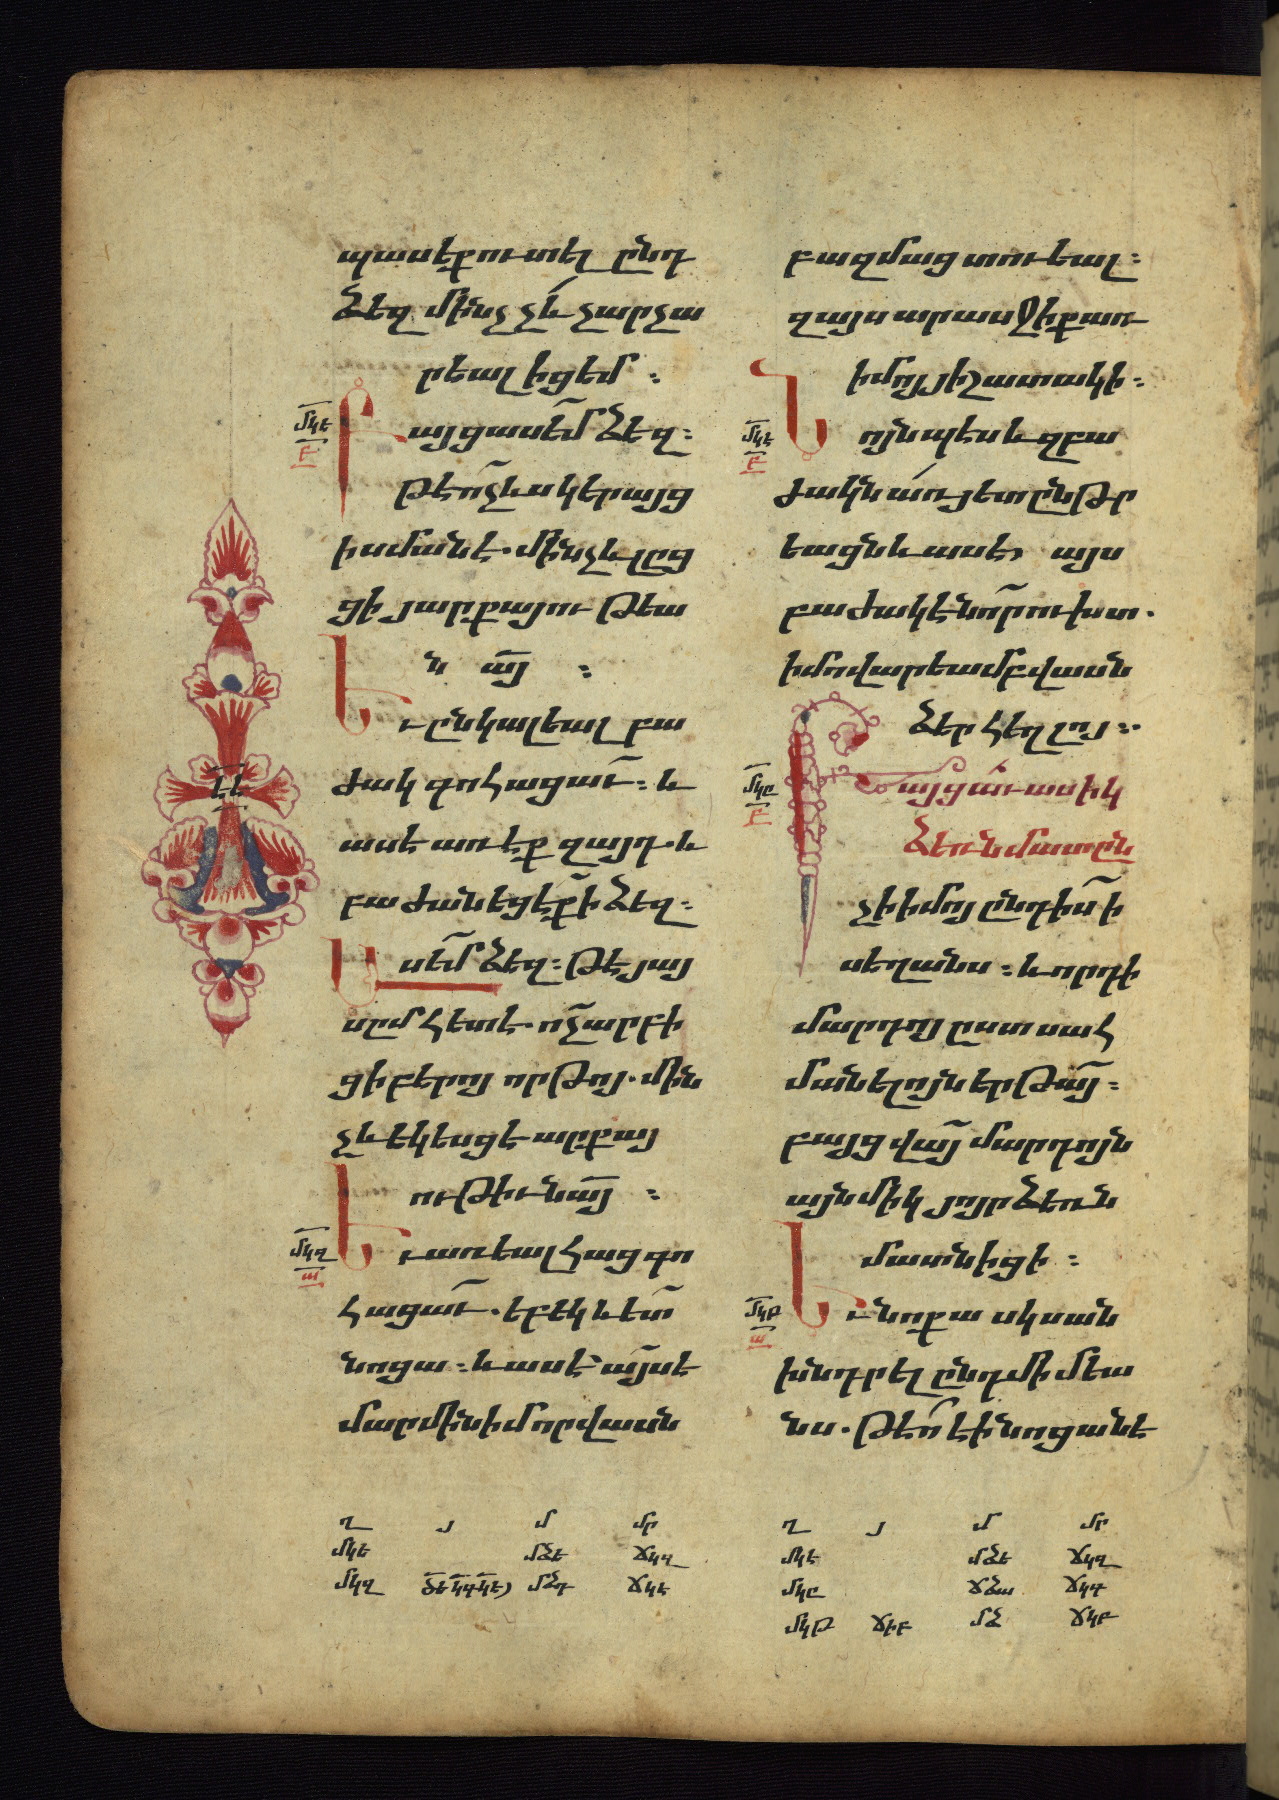 պասէքուտել ընդ
ձեզ մինչ չև չարչա
րեալ իցեմ ։
մկե
բ
Բայց ասեմ ձեզ։
թէ ոչ ևս կերայց
ի սմանէ. մինչև լըց
ցի յարքայութեա
ն այ ։
Եւ ընկալեալ բա
ժակ գոհացաւ ։ և
ասէ առէք զայդ. և
բաժանեցէք ի ձեզ։
Ասեմ ձեզ ։ թէ յայ
սըմ հետէ. ոչ արբի
ց ի բերոյ որթոյ. մին
չև եկեսցէ արքայ
ութիւն այ ։
մկզ
ա
Եւ առեալ հաց գո
հացաւ. եբեկ և ետ
նոցա ։ և ասէ այս է
մարմին իմ որ վասն
բազմաց տուեալ ։
զայս արասջիք առ
իմոյ յիշատակի ։
մկէ
բ
Նոյնպէս և զբա
ժակն առ յետ ընթր
եացն և ասէ այս
բաժակ է նոր ուխտ.
իմով արեամբ վասն
ձեր հեղլոյ ։
մկը
բ
Բայց աւասիկ
ձեռն մատըն
չի իմոյ ընդ իս ի
սեղանս ։ և որդի
մարդոյ ըստ սահ
մանելոյն երթայ ։
բայց վայ մարդոյն
այնմիկ յոյր ձեռն
մատնիցի ։
մկթ
ա
Եւ նոքա սկսան
խնդրել ընդ միմեա
նս. թէ ո է ի նոցանէ
ղ յ մ մր
մկե մձե ճկզ
մկզ ծե կդ կե մձդ ճկե
ղ յ մ մր
մկէ մձե ճկզ
մկը ճձա ճկդ
մկթ ճիբ մձ ճկբ